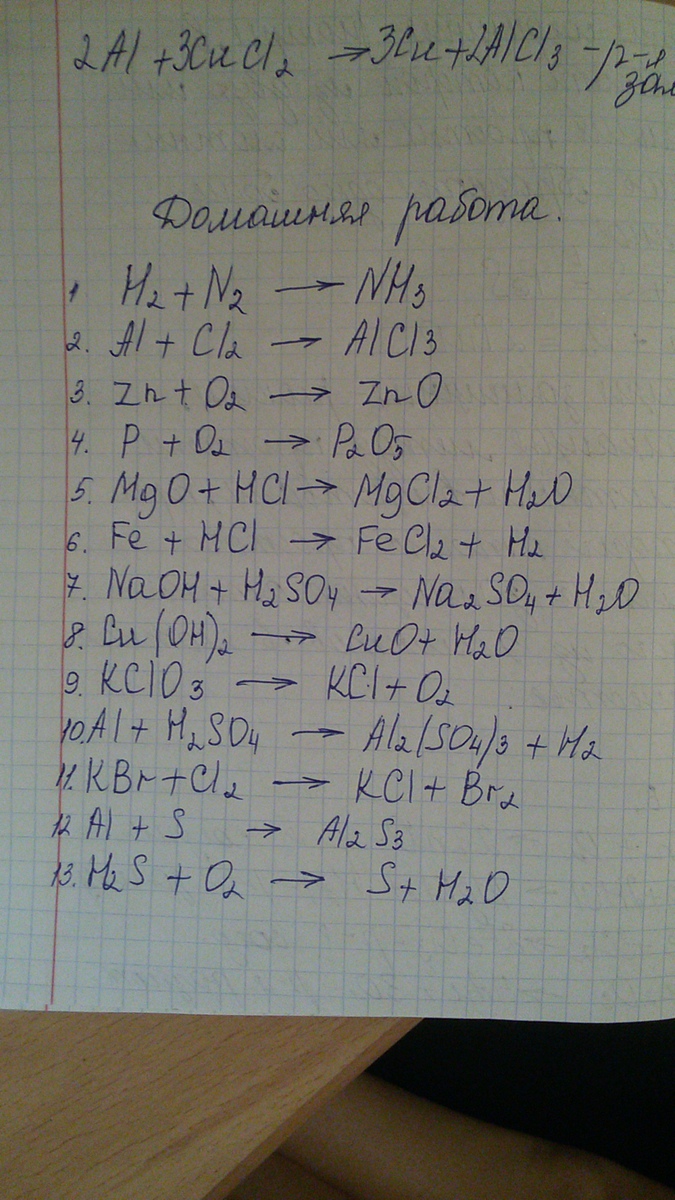 2Al + 3CuCl₂ → 3Cu + 2AlCl₃ - р-я
зам
Домашняя работа.
1 H₂ + N₂ → NH₃
2. Al + Cl₂ → AlCl3
3. Zn + O₂ → ZnO
4. P + O₂ → P₂O₅
5. MgO + HCl → MgCl₂ + H₂O
6. Fe + HCl → FeCl₂ + H₂
7. NaOH + H₂SO₄ → Na₂SO₄ + H₂O
8. Cu(OH)₂ → CuO + H₂O
9. KClO₃ → KCl + O₂
10. Al + H₂SO₄ → Al₂(SO₄)₃ + H₂
11. KBr + Cl₂ → KCl + Br₂
12 Al + S → Al₂S₃
13. H₂S + O₂ → S + H₂O